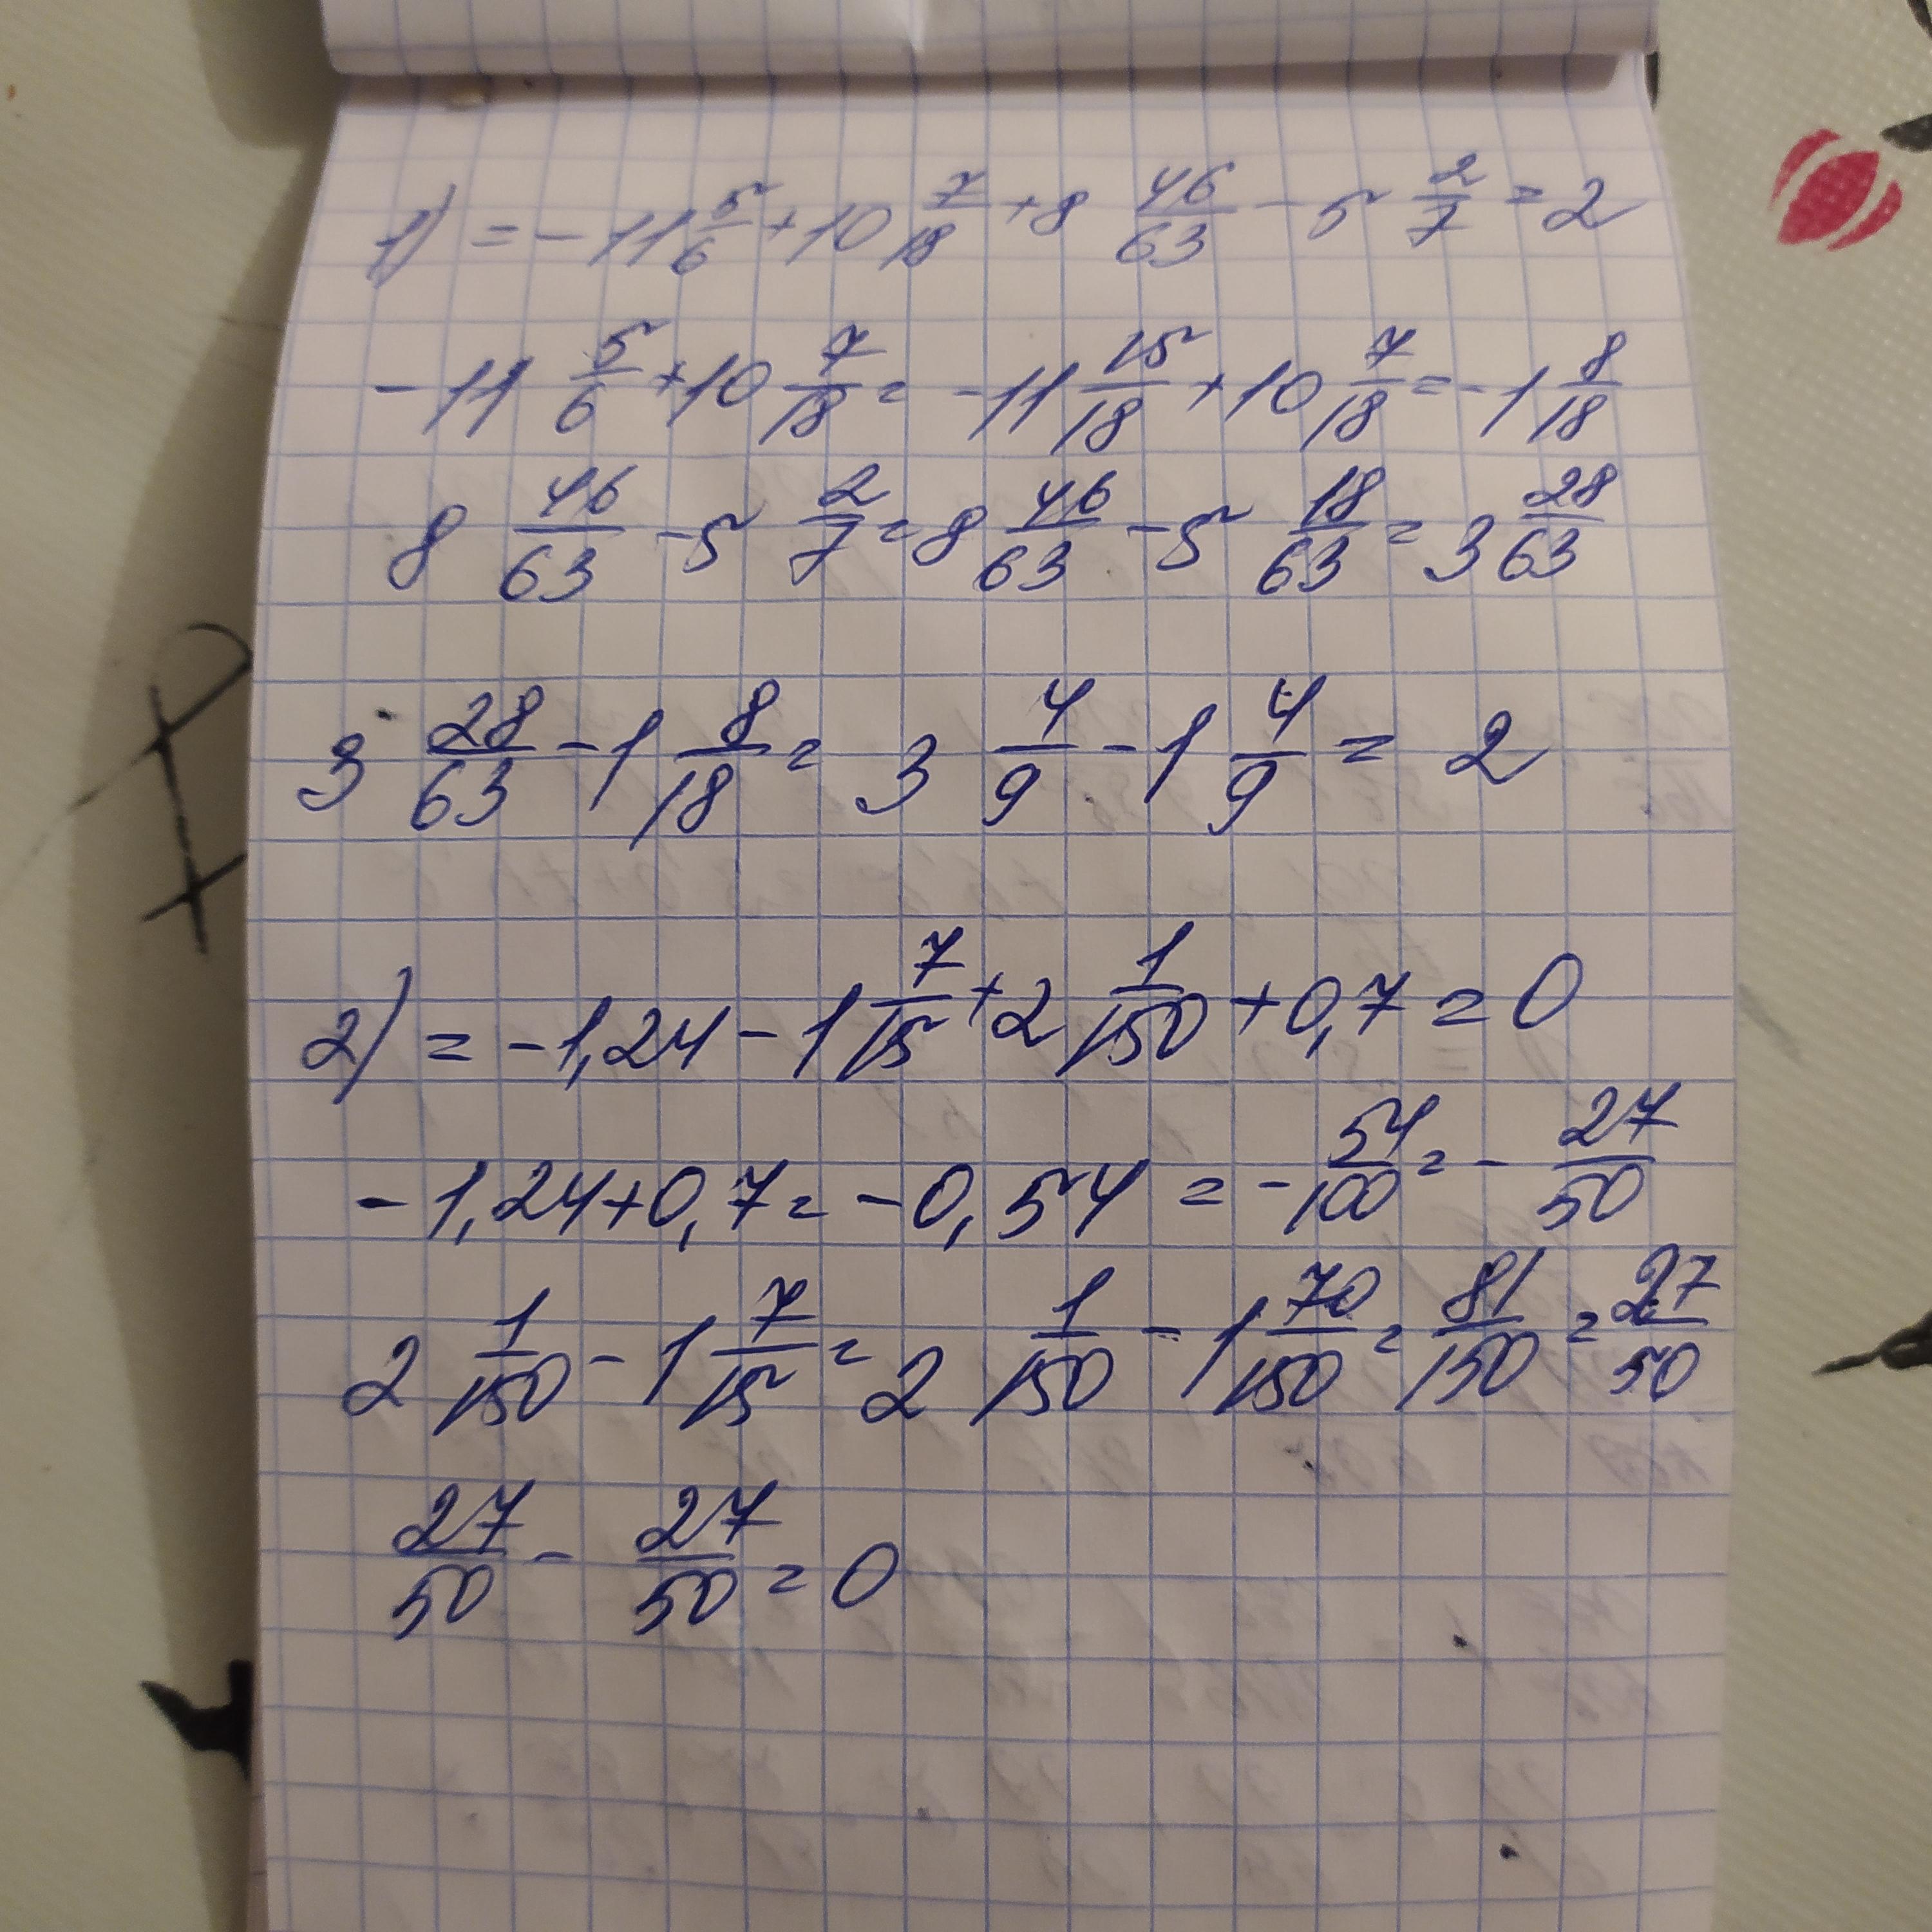 1) = -11 5/6 + 10 7/18 + 8 46/63 - 5 2/7 = 2
-11 5/6 + 10 7/18 = -11 15/18 + 10 7/18 = -1 8/18
8 46/63 - 5 2/7 = 8 46/63 - 5 18/63 = 3 28/63
3 28/63 - 1 8/18 = 3 4/9 - 1 4/9 = 2
2) = -1,24 - 1 7/15 + 2 1/150 + 0,7 = 0
-1,24 + 0,7 = -0,54 = -54/100 = -27/50
2 1/150 - 1 7/15 = 2 1/150 - 1 70/150 = 81/150 = 27/50
27/50 - 27/50 = 0